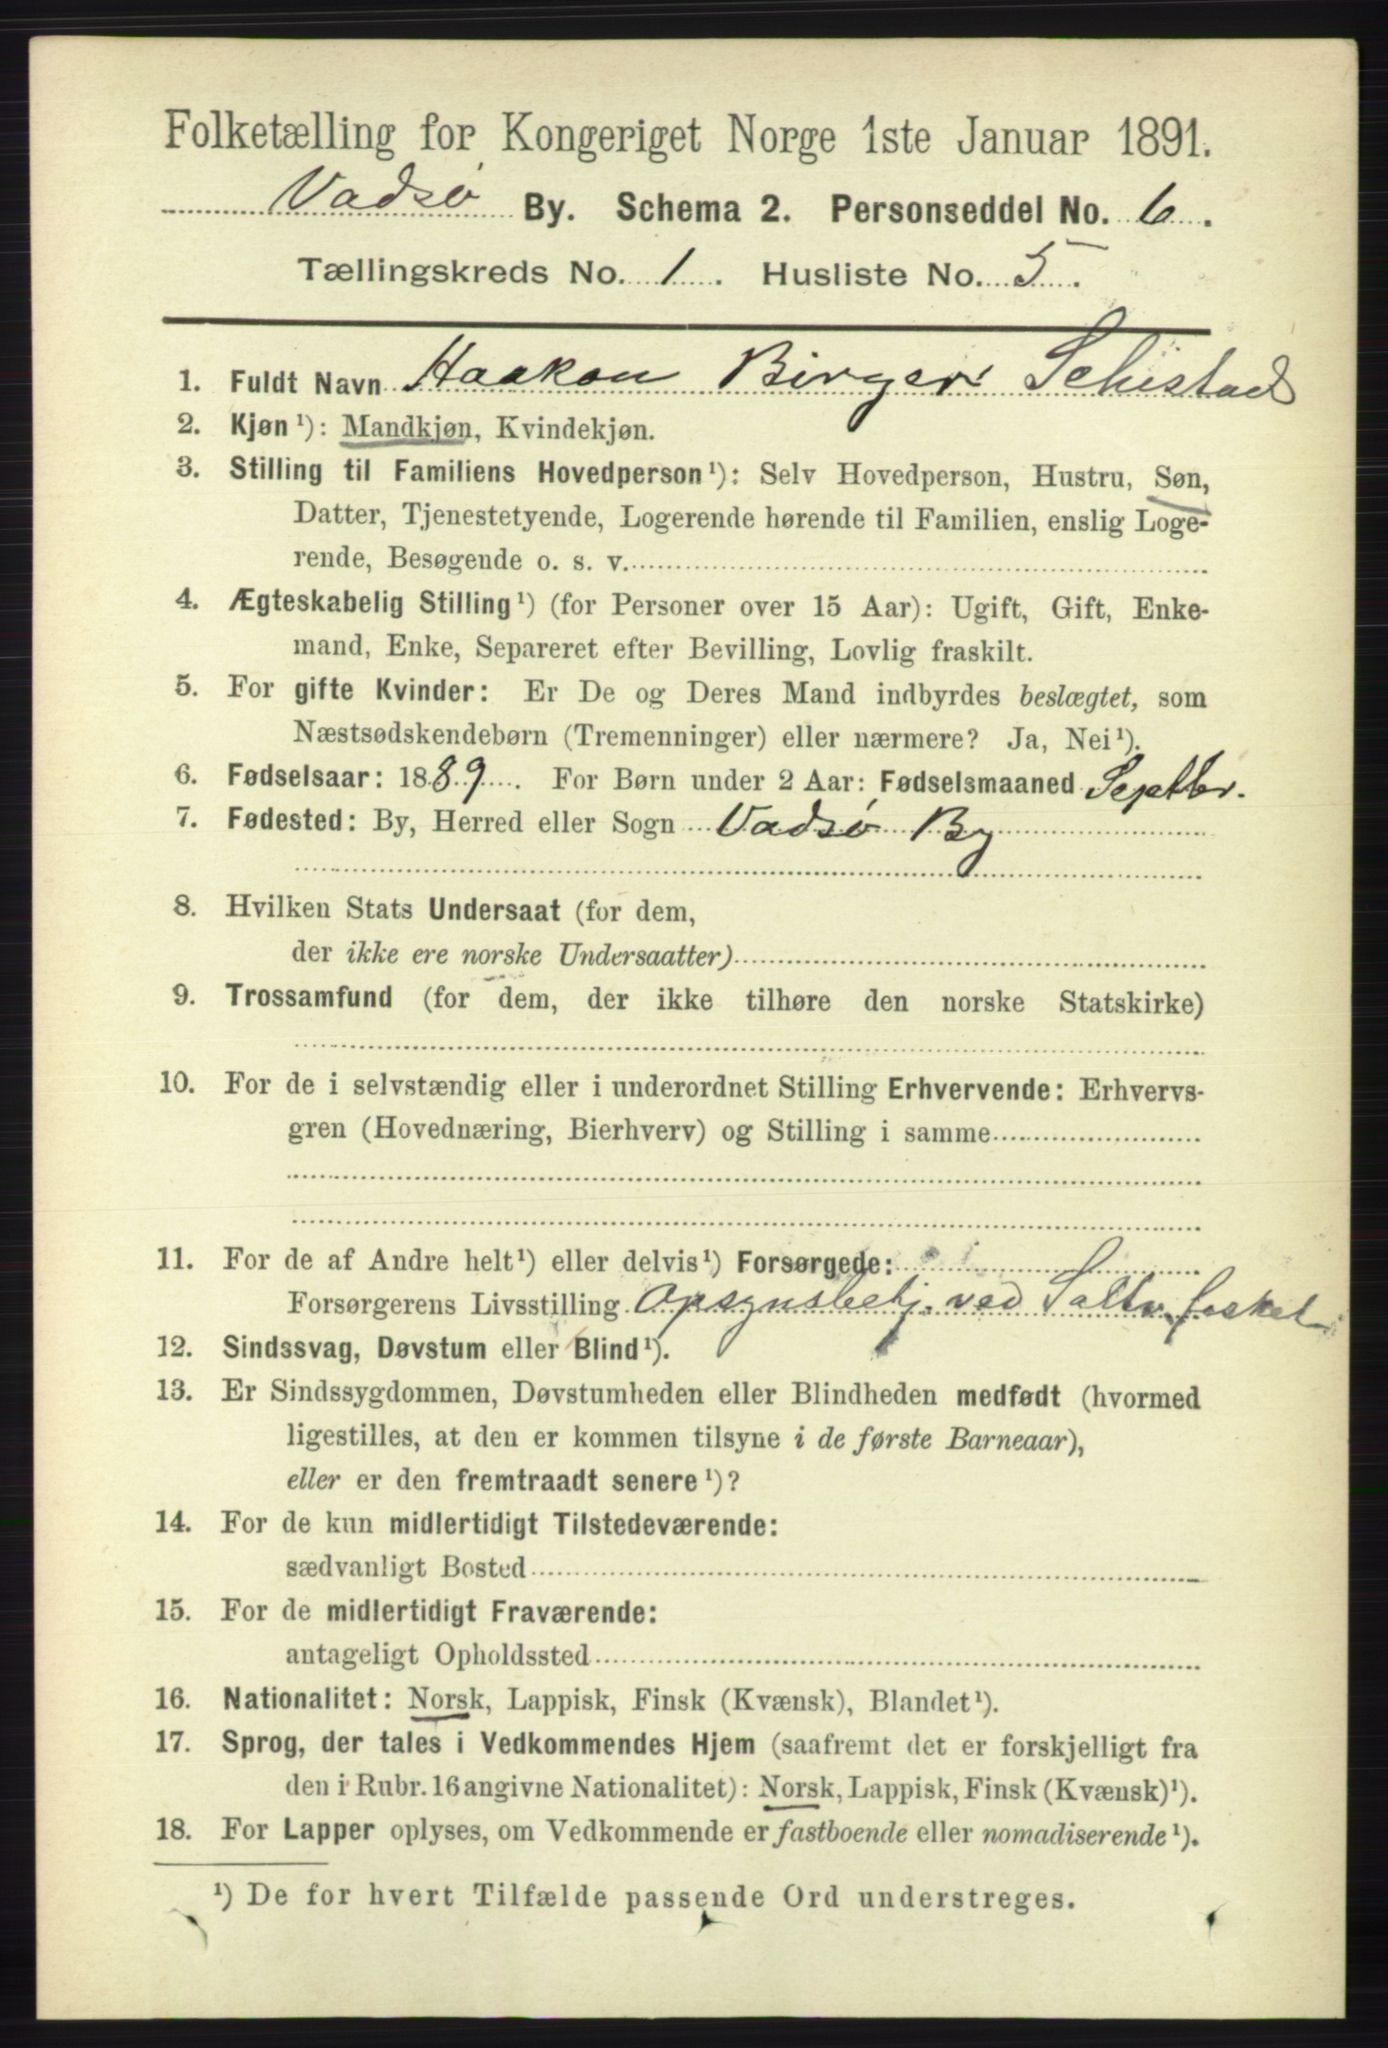 Folketælling for Kongeriget Norge 1ste Januar 1891.
Vadsø By. Schema 2. Personseddel No. 6.
Tællingskreds No. 1. Husliste No. 5.
1. Fuldt Navn Haakon Birger Schistad
2. Kjøn¹): Mandkjøn, Kvindekjøn.
3. Stilling til Familiens Hovedperson¹): Selv Hovedperson, Hustru, Søn,
Datter, Tjenestetyende, Logerende hørende til Familien, enslig Loge-
rende, Besøgende o. s. v.
4. Ægteskabelig Stilling¹) (for Personer over 15 Aar): Ugift, Gift, Enke-
mand, Enke, Separeret efter Bevilling, Lovlig fraskilt.
5. For gifte Kvinder: Er De og Deres Mand indbyrdes beslægtet, som
Næstsødskendebørn (Tremenninger) eller nærmere? Ja, Nei¹).
6. Fødselsaar: 1889. For Børn under 2 Aar: Fødselsmaaned Septbr.
7. Fødested: By, Herred eller Sogn Vadsø By
8. Hvilken Stats Undersaat (for dem,
der ikke ere norske Undersaatter)
9. Trossamfund (for dem, der ikke tilhøre den norske Statskirke)
10. For de i selvstændig eller i underordnet Stilling Erhvervende: Erhvervs-
gren (Hovednæring, Bierhverv) og Stilling i samme
11. For de af Andre helt¹) eller delvis¹) Forsørgede:
Forsørgerens Livsstilling Opsynsbetj. ved
12. Sindssvag, Døvstum eller Blind¹).
13. Er Sindssygdommen, Døvstumheden eller Blindheden medfødt (hvormed
ligestilles, at den er kommen tilsyne i de første Barneaar),
eller er den fremtraadt senere¹)?
14. For de kun midlertidigt Tilstedeværende:
sædvanligt Bosted
15. For de midlertidigt Fraværende:
antageligt Opholdssted
16. Nationalitet: Norsk, Lappisk, Finsk (Kvænsk), Blandet¹).
17. Sprog, der tales i Vedkommendes Hjem (saafremt det er forskjelligt fra
den i Rubr. 16 angivne Nationalitet): Norsk, Lappisk, Finsk (Kvænsk)¹).
18. For Lapper oplyses, om Vedkommende er fastboende eller nomadiserende¹).
¹) De for hvert Tilfælde passende Ord understreges.